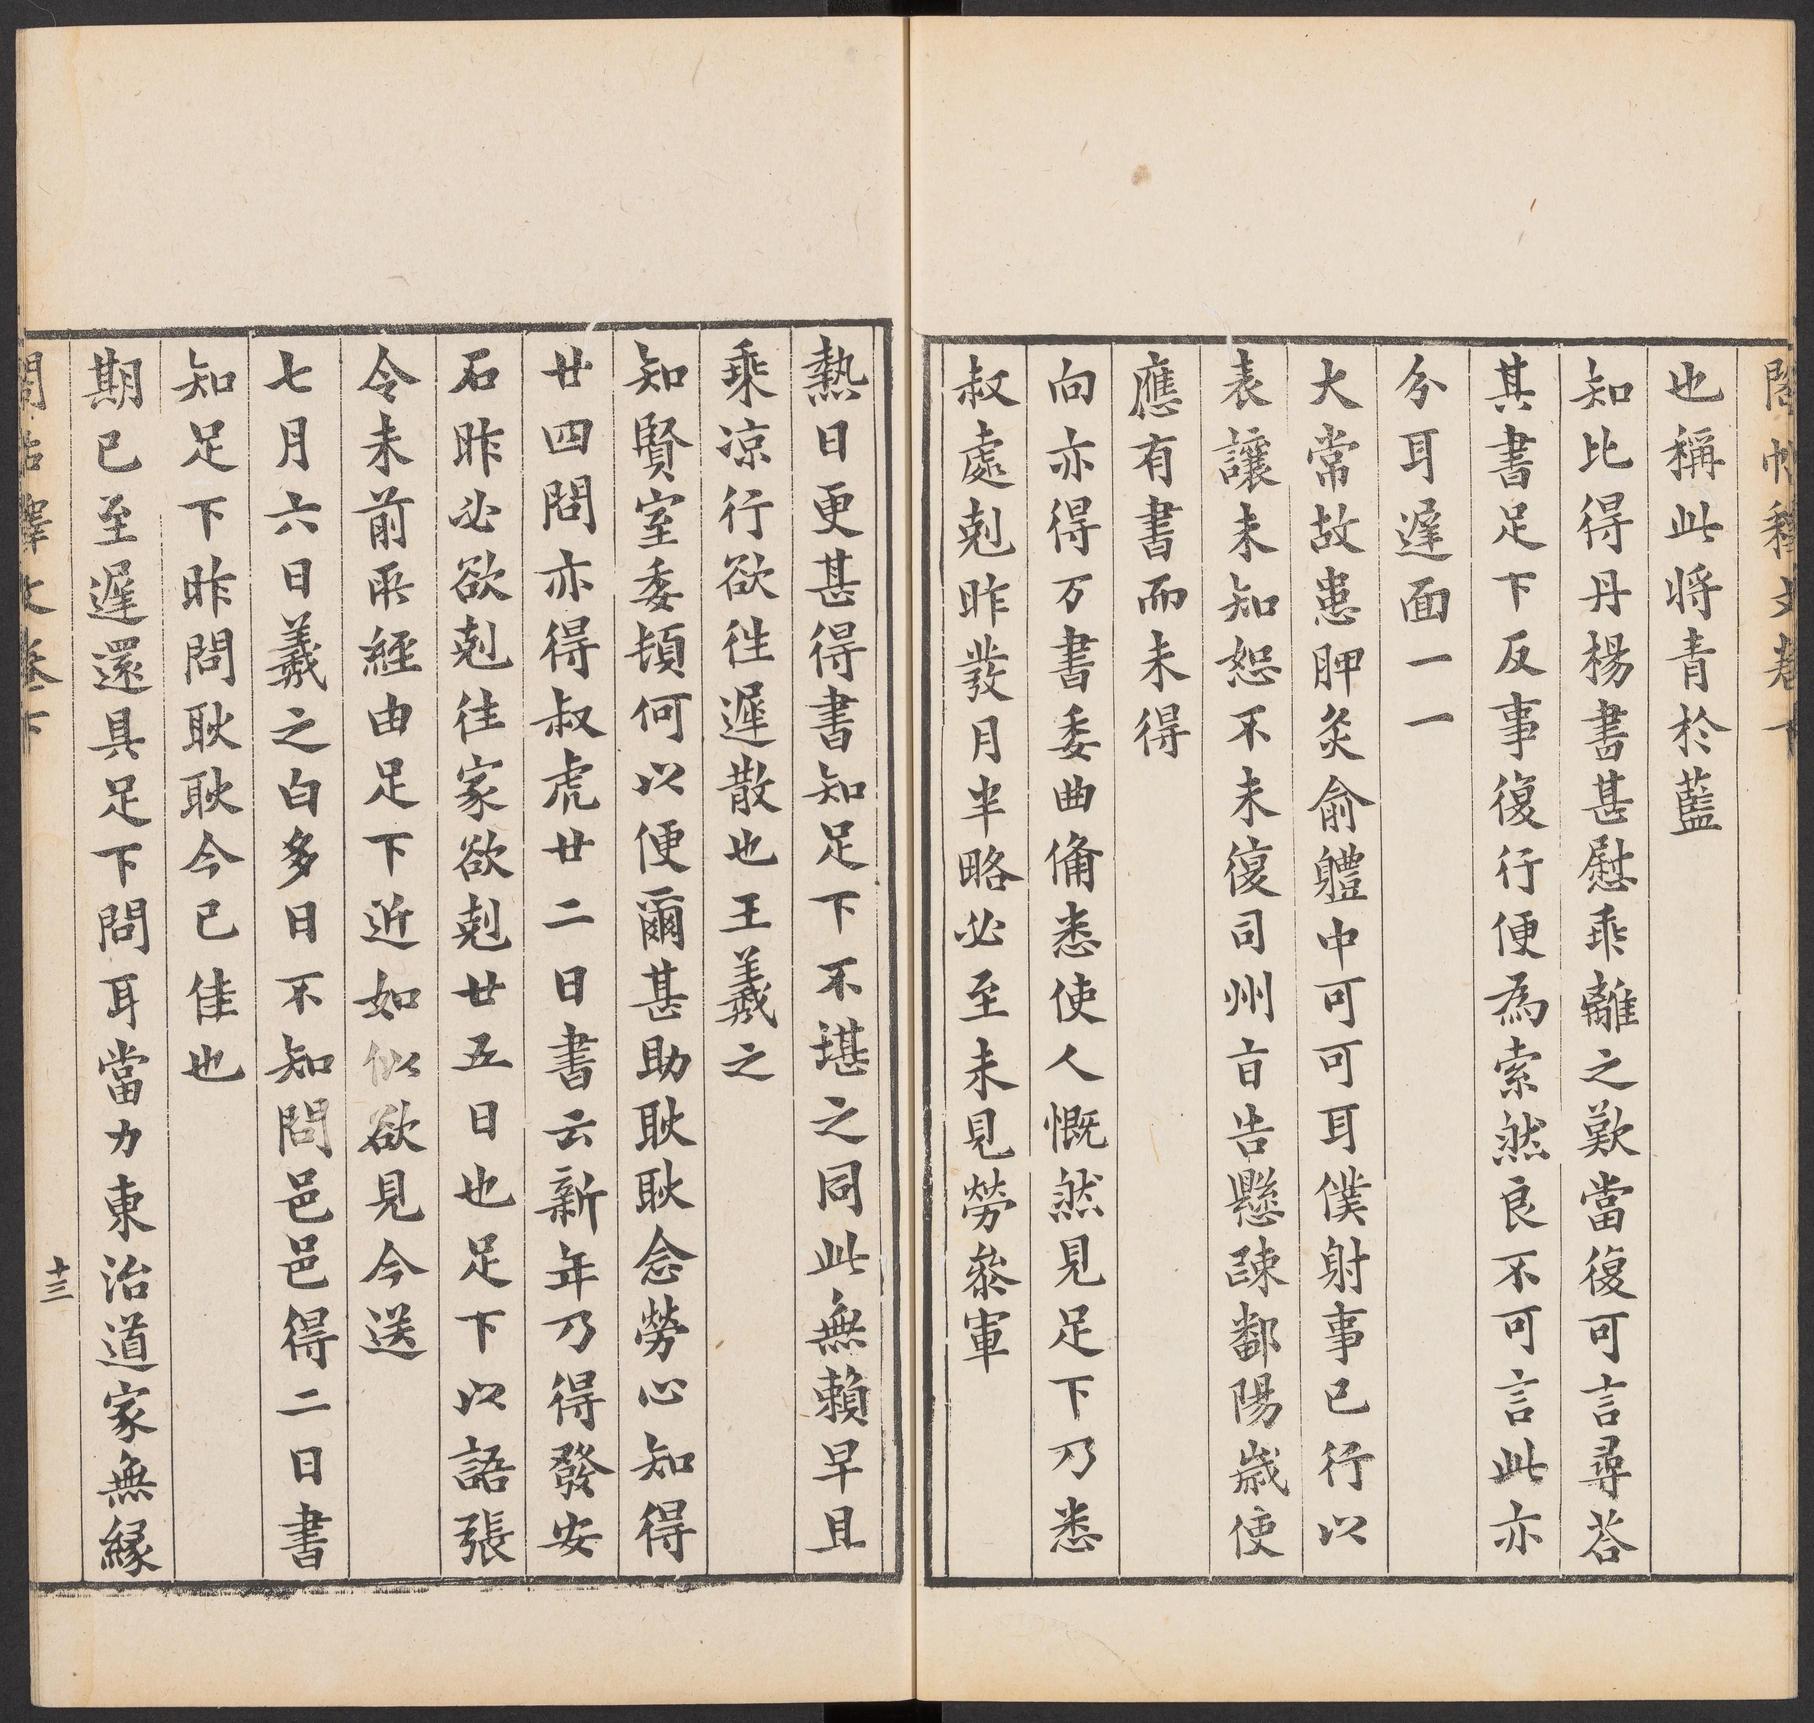 閣帖釋文卷下
也稱此將青於藍
知比得丹楊書甚慰乖離之歎當復可言尋荅
其書足下反事復行便為索然良不可言此亦
分耳遲面一一
大常故患胛灸俞體中可可耳僕射事已行以
表讓未知恕不未復司州旨告懸踈鄱陽歲使
應有書而未得
向亦得万書委曲俻悉使人慨然見足下乃悉
叔處剋昨發月半略必至未見勞叅軍
熱日更甚得書知足下不堪之同此無賴早且
乗凉行欲往遲散也王羲之
知賢室委頓何以便爾甚助耿耿念勞心知得
廿四問亦得叔虎廿二日書云新年乃得發安
石昨必欲剋往家欲剋廿五日也足下以語張
令未前所經由足下近如似欲見今送
七月六日羲之白多日不知問邑邑得二日書
知足下昨問耿耿今已佳也
期已至遲還具足下問耳當力東治道家無縁
閣帖釋文卷下
十三